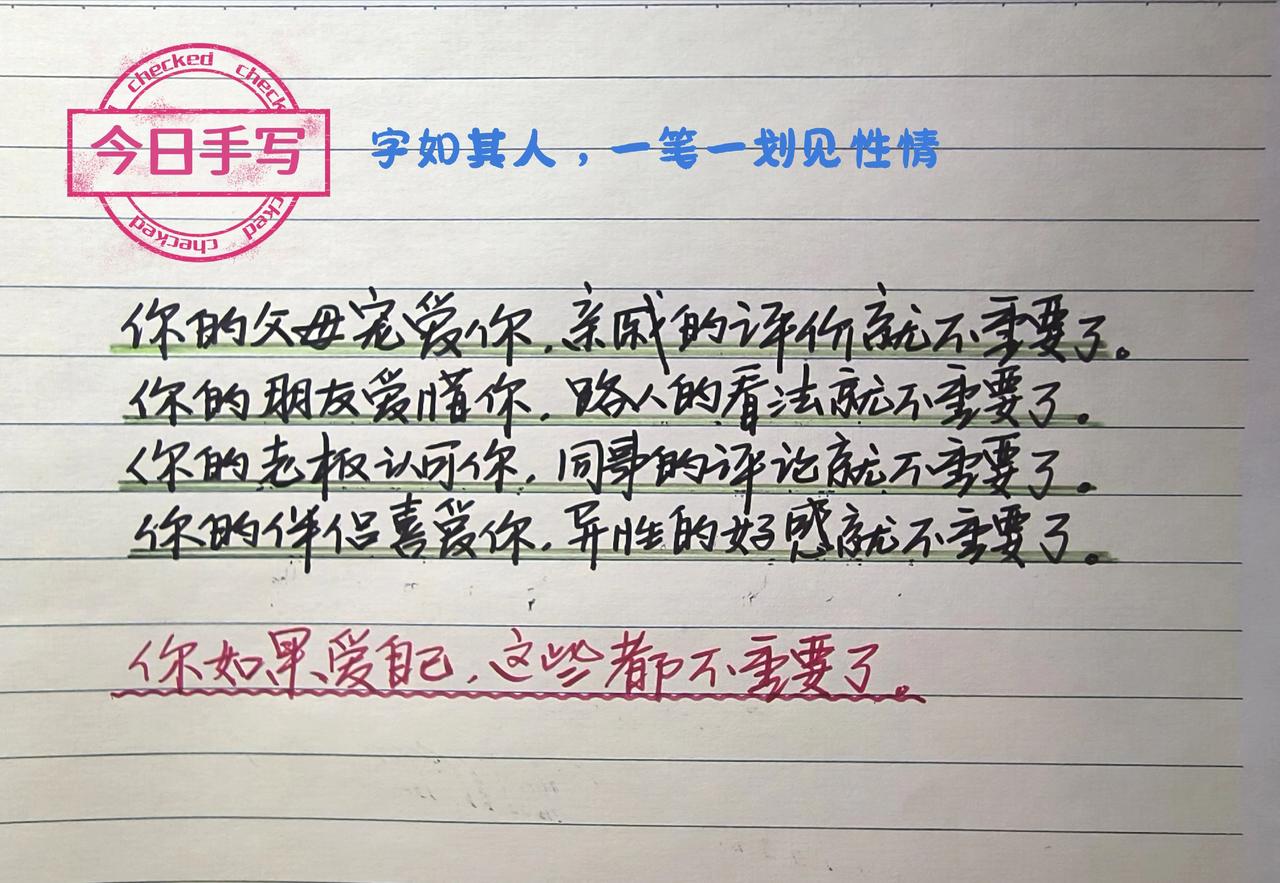 checked check
今日手写
cked checked checked
字如其人，一笔一划见性情
你的父母宠爱你，亲戚的评价就不重要了。
你的朋友爱惜你，路人的看法就不重要了。
你的老板认可你，同事的评论就不重要了。
你的伴侣喜爱你，异性的好感就不重要了。
你如果爱自己，这些都不重要了。